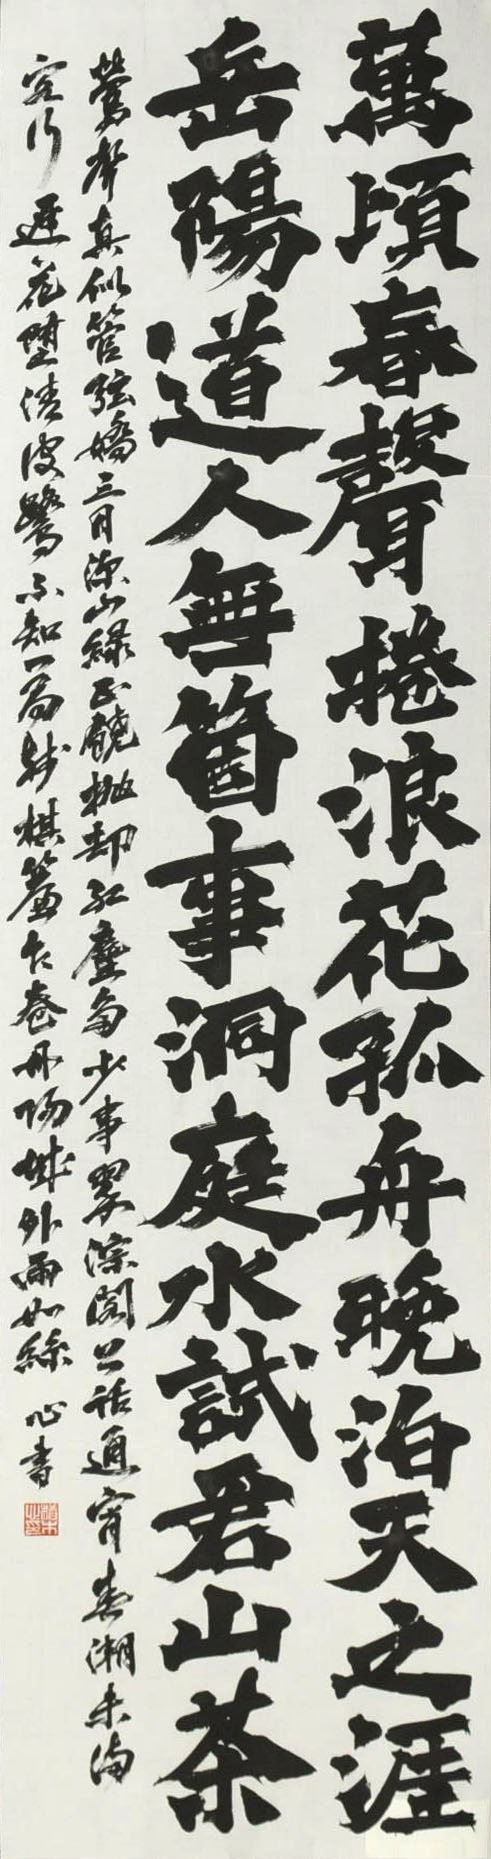 萬頃春聲捲浪花孤舟晚泊天之涯
岳陽道人無箇事洞庭水試君山茶
鶯聲真似管弦嬌三月深山綠正饒拋却紅塵多少事翠深閣上話通宵春湖未滿
客行遲花墮清波鷺不知一局殘棋簾乍卷丹陽城外雨如絲 心書